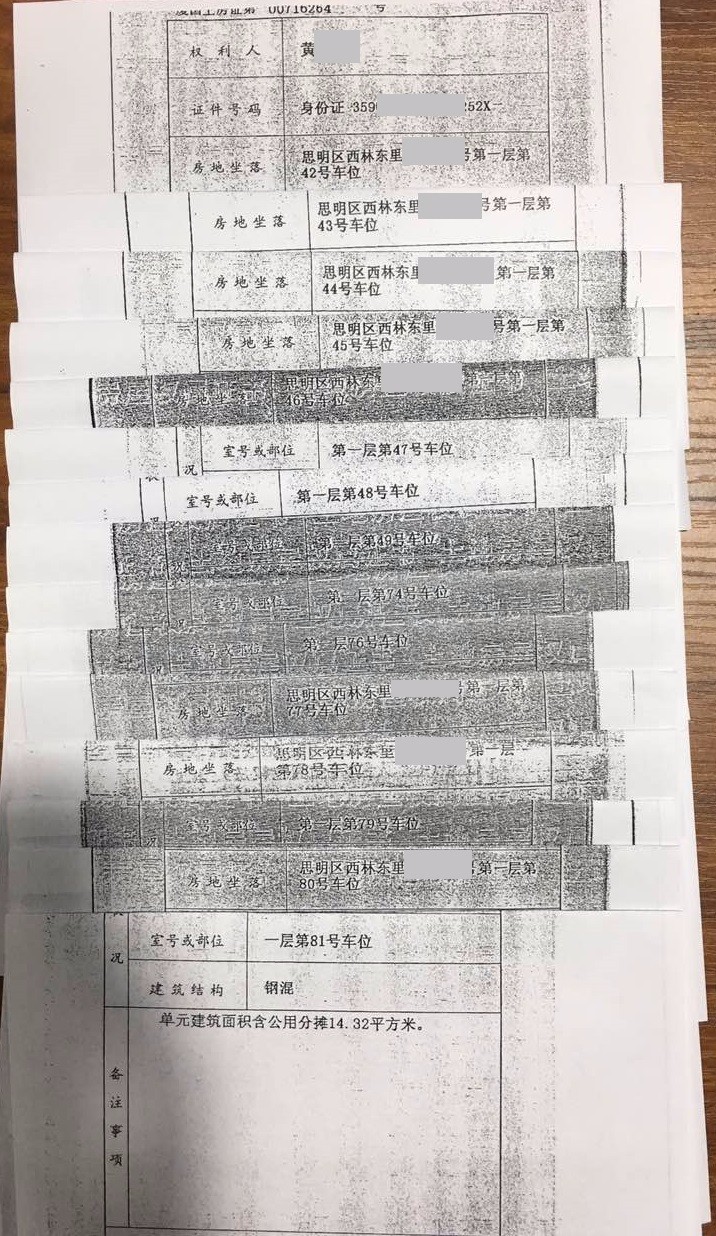 厦国土房证第 00716264 号
权利人 黄
证件号码 身份证 359 252X
房地坐落 思明区西林东里 号第一层第
42号车位
房地坐落 思明区西林东里 号第一层第
43号车位
房地坐落 思明区西林东里 第一层第
44号车位
房地坐落 思明区西林东里 号第一层第
45号车位
房地坐落 思明区西林东 第一层第
46号车位
况 室号或部位 第一层第47号车位
室号或部位 第一层第48号车位
室号或部位 第一层第49号车位
况 室号或部位 第一层第74号车位
况 室号或部位 第一层76号车位
房地坐落 思明区西林东里 号第一层第
77号车位
房地坐落 思明区西林东里 第一层
第78号车位
况 室号或部位 第一层第79号车位
房地坐落 思明区西林东里 号第一层第
80号车位
况 室号或部位 一层第81号车位
建筑结构 钢混
备注事项 单元建筑面积含公用分摊14.32平方米。